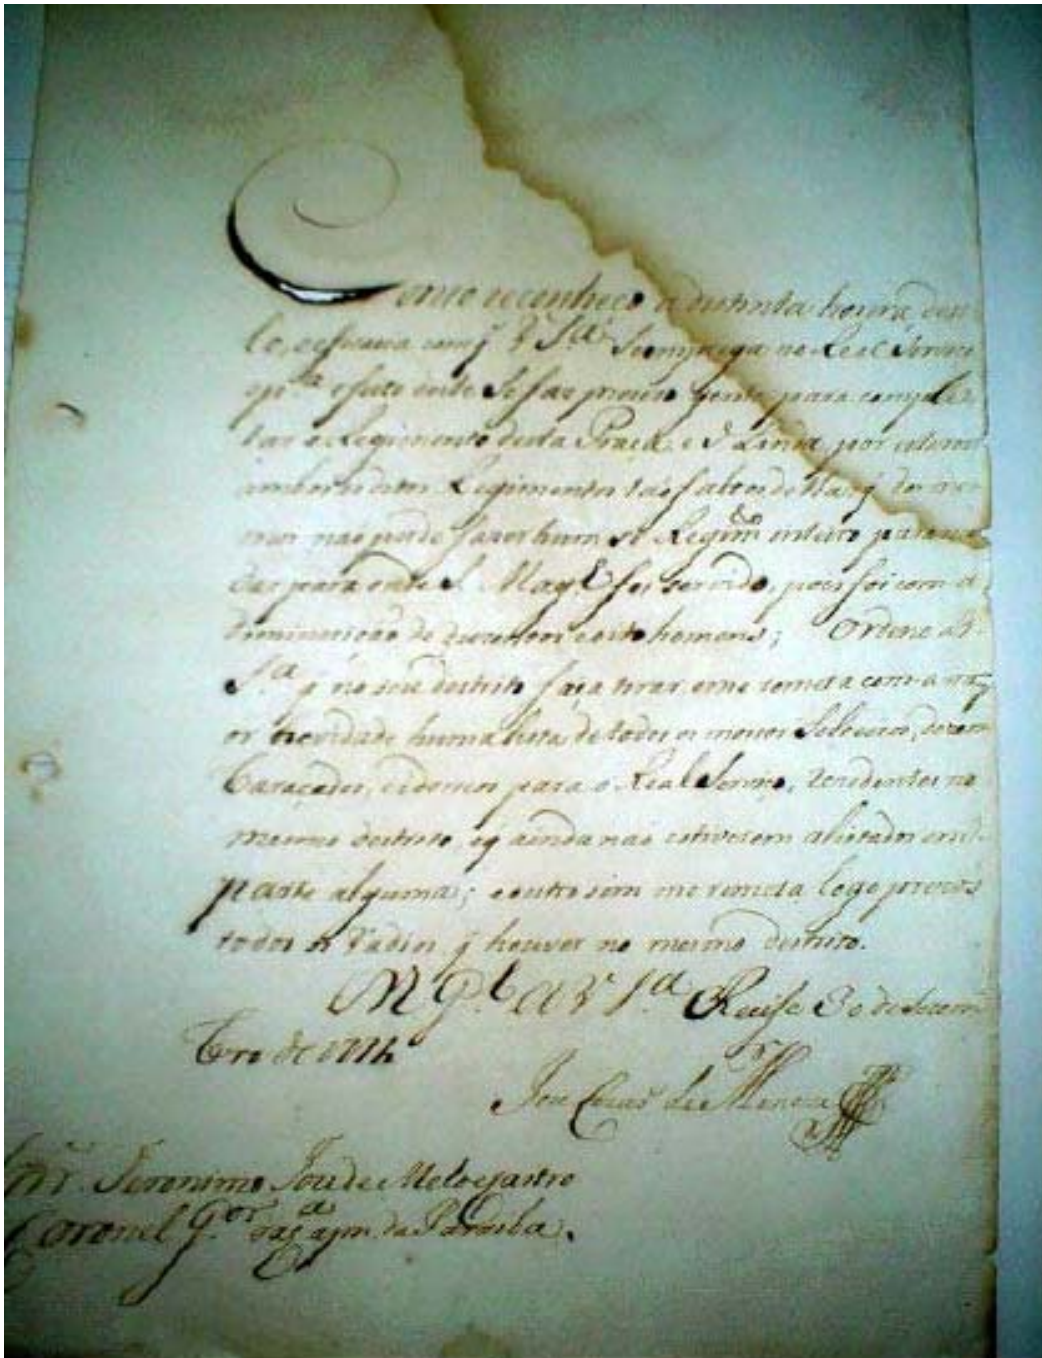 Como reconheço a distinta honra,
lo, e efficacia com q̃ V. S.ª Se emprega no Real Servico
efeito onde Se faz precizo gente para comple
tar o Regimento desta Praça, e d' Linda, por
ambos os ditos Regimentos tão faltos de
não pude fazer hum só Regim.to inteiro para
dar para onde S. Mag.e foi servido, pois foi com a
diminuição de duzentos e oito homens; Ordeno a V.
S.ª q̃ no seu destrito faça tirar, e me remeta com a may
or brevidade huma lista de todos os moços Solteiros, dezem
baraçados, e idoneos para o Real Serviço, rezidentes no
mesmo destrito, e q̃ ainda não estiverem alistados em
parte alguma; e outro sim me remeta logo prezos
todos os Vadios q̃ houver no mesmo destrito.
D.s G.e a V. S.ª Recife 30 de Setem
bro de 1774
Joze Cezar de Menezes
Snr. Jeronimo Joze de Mello e Castro
Coronel G.or da Cap.nia da Paraiba.